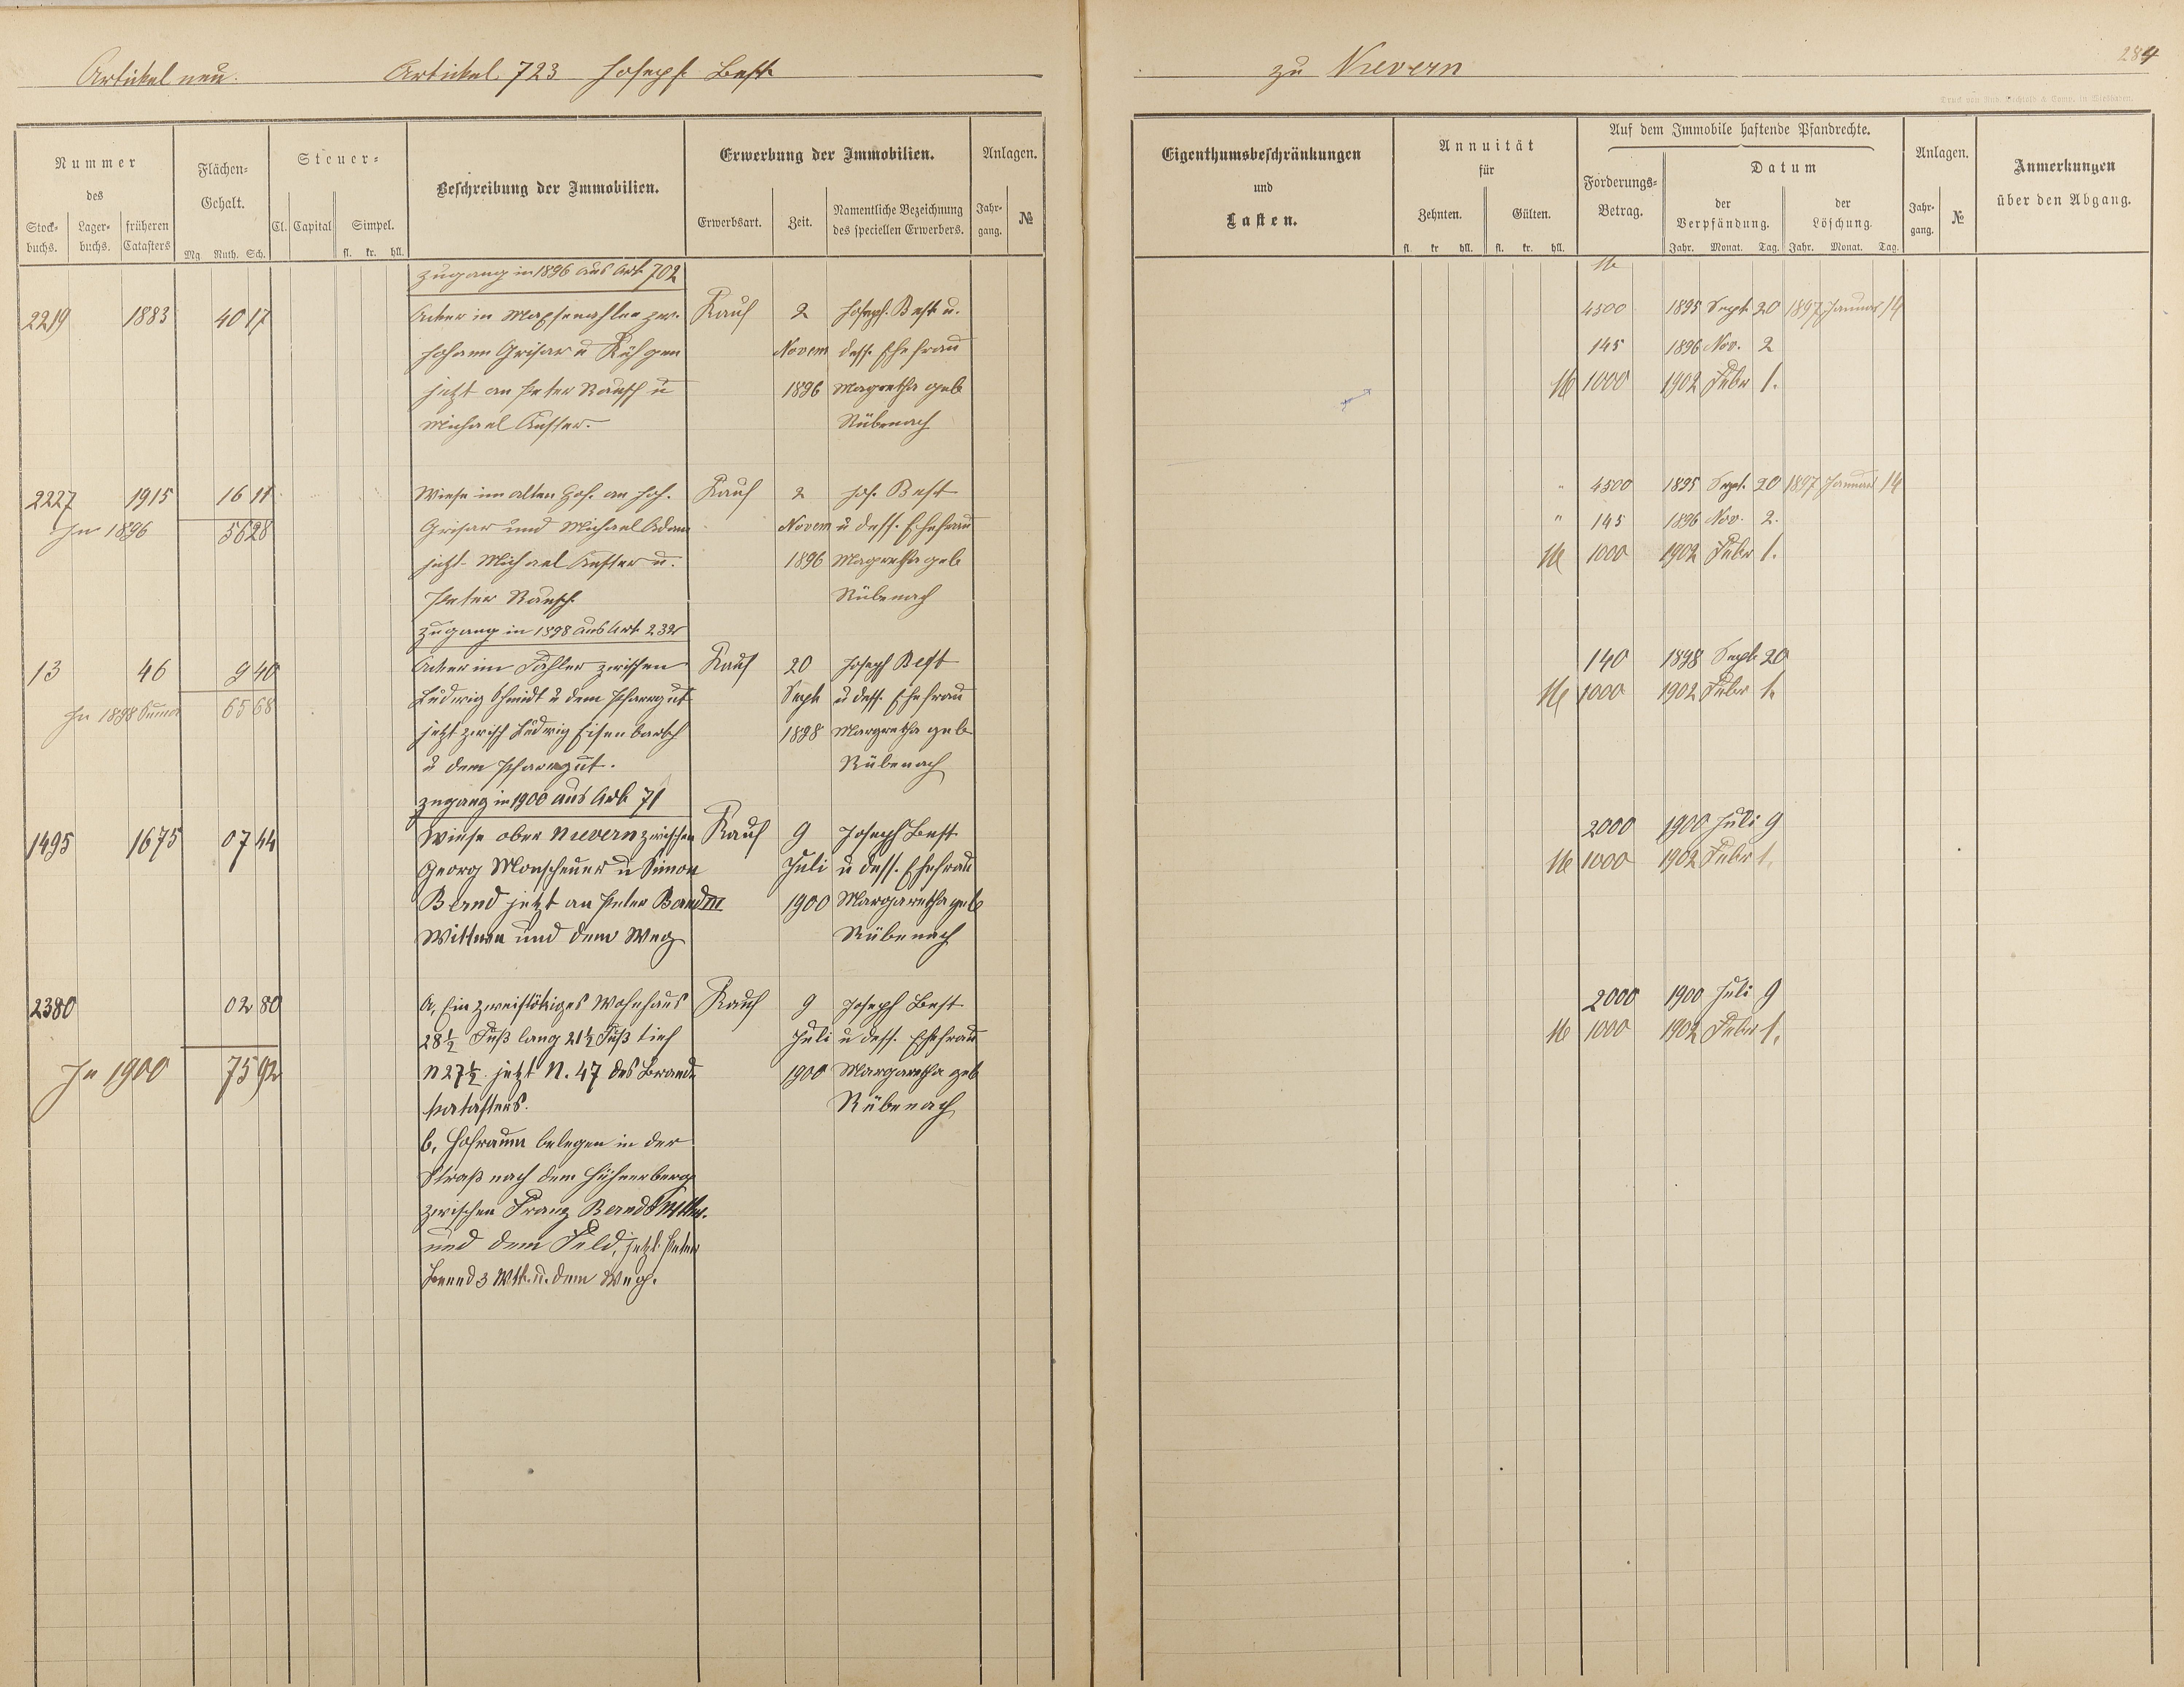 Artikel neu. Artikel 723 Joseph Best zu Nievern 284
Nummer des
Stock-buchs. Lager-buchs. früheren Catasters
Flächen-Gehalt.
Mg Ruth. Sch.
Steuer-
Cl. Capital Simpel.
fl. kr. hll.
Beschreibung der Immobilien.
Erwerbung der Immobilien.
Erwerbsart. Zeit. Namentliche Bezeichnung des speciellen Erwerbers.
Anlagen.
Jahr-gang. №
Eigenthumsbeschränkungen
und
Lasten.
Annuität
für
Zehnten. Gülten.
fl. kr hll. fl. kr. hll.
Auf dem Immobile haftende Pfandrechte.
Forderungs-Betrag.
Datum
der Verpfändung. der Löschung.
Jahr. Monat. Tag. Jahr. Monat. Tag.
Anlagen.
Jahr-gang. №
Anmerkungen
über den Abgang.
Zugang in 1896 aus Art. 702 M
2219 1883 40 17 Acker in zw. Kauf 2 Joseph Best u. 4500 1895 Sept 20 1897 Januar 14
Johann Grisar u Novem dess. Ehefrau 145 1896 Nov. 2
jetzt an Peter Rausch u 1896 Magretha geb M 1000 1902 Febr 1.
Michael Rübenach
2227 1915 16 11 Wiese im alten an Joh. Kauf 2 Jos. Best " 4500 1895 Sept. 20 1897 Januar 14
In 1896 56 28 Grisar und Michael Adam Novem u dess. Ehefrau " 145 1896 Nov. 2.
jetzt Michael u. 1896 Magretha geb M 1000 1902 Febr 1.
Peter Rausch. Rübenach
Zugang in 1898 aus Art. 232
13 46 9 40 Acker im zwischen Kauf 20 Joseph Best 140 1898 Sept 20
In 1898 Suma 65 68 Ludwig Schmidt u dem Pfarrgut Sept u dess. Ehefrau M 1000 1902 Febr 1.
jetzt zwisch Ludwig Eisenbarth 1898 Margretha geb
u dem Pfarrgut. Rübenach
Zugang in 1900 aus Art. 71
1495 1675 07 44 Wiese ober Nievern zwischen Kauf 9 Joseph Best 2000 1900 Juli 9
Georg Monscheuer u Simon Juli u dess. Ehefrau M 1000 1902 Febr 1.
Bernd jetzt an Peter Bernd III 1900 Margaretha geb
Wittwe und dem Weg Rübenach
2380 02 80 a, Ein zweistökiges Wohnhaus Kauf 9 Joseph Best 2000 1900 Juli 9
28½ Fuß lang 21½ Fuß tief Juli u dess. Ehefrau M 1000 1902 Febr 1.
In 1900 75 92 N 27½ jetzt N. 47 des Brand 1900 Margaretha geb
katasters. Rübenach
b, Hofraum belegen in der
Straß nach dem Hühnerberg
zwischen Franz Bernd
und dem Feld, jetzt Peter
Bernd 3 Wtb. u. dem Weg.